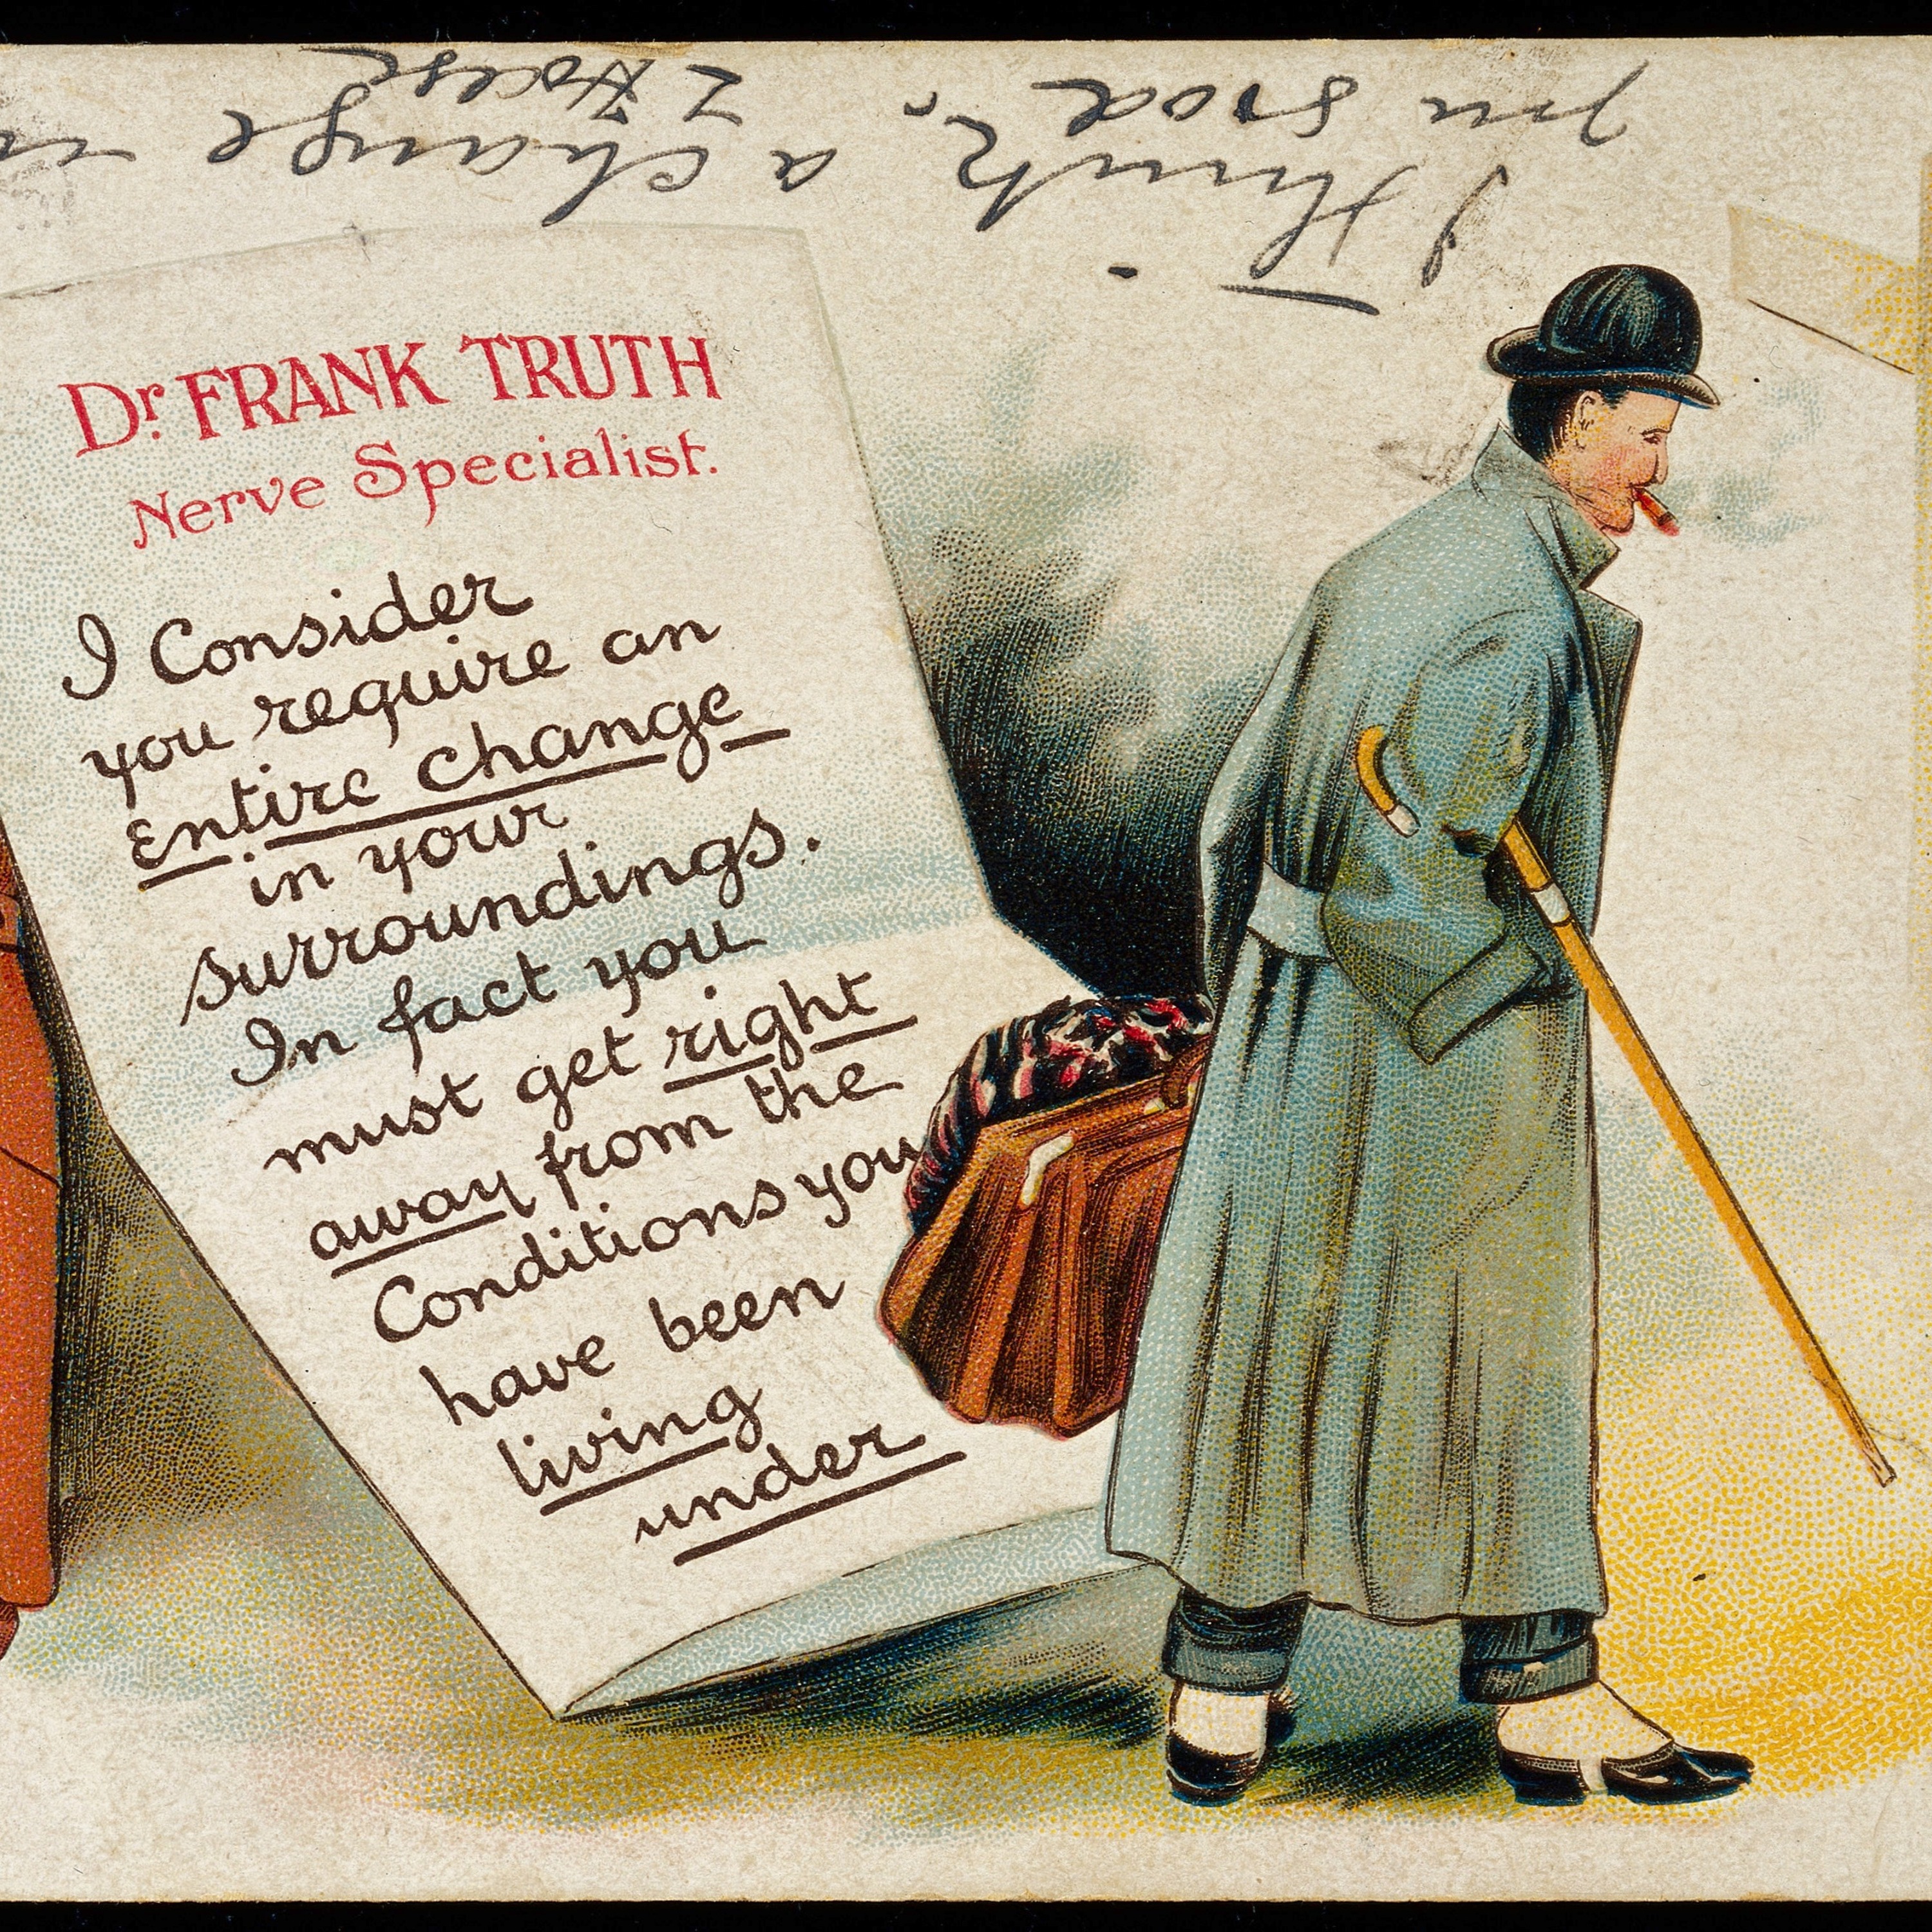 I Think a change
you good House
Dr. FRANK TRUTH
Nerve Specialist.
I Consider
you require an
entire change
in your
surroundings.
In fact you
must get right
away from the
Conditions you
have been
living
under